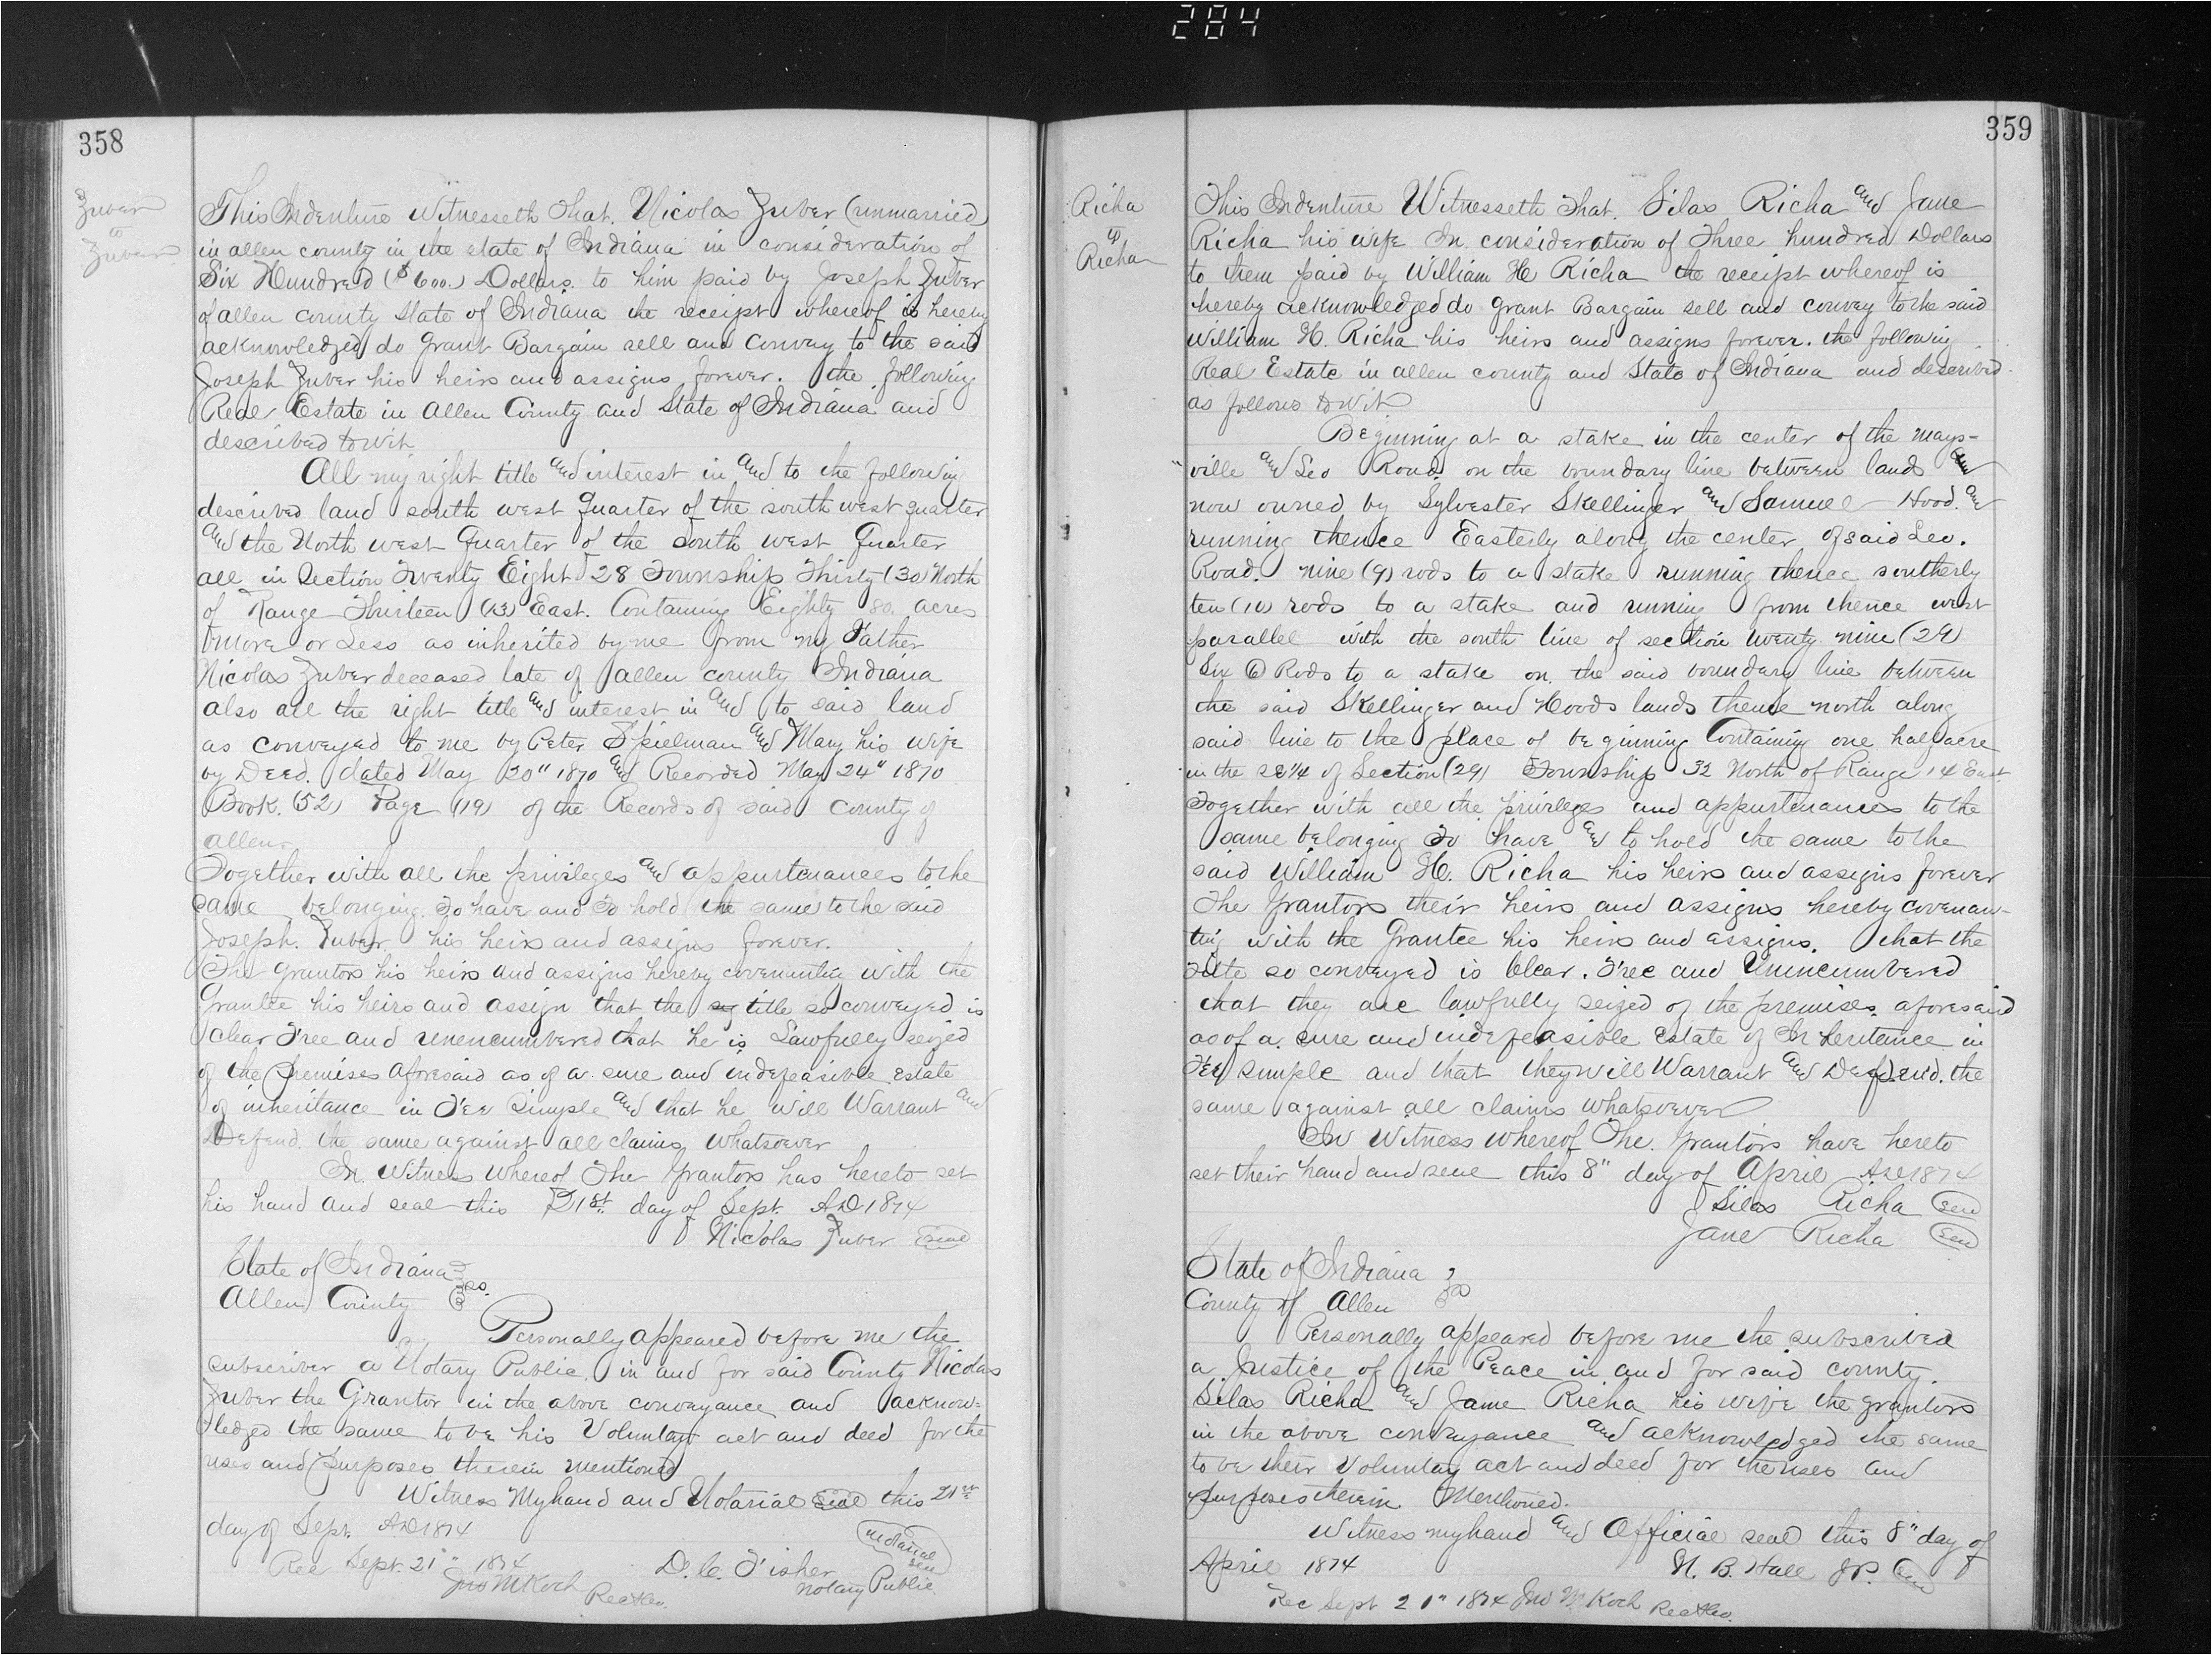 284
358
Zuber
to
Zuber
This Indenture Witnesseth That. Nicolas Zuber (unmarried)
in allen county in the state of Indiana in consideration of
Six Hundred ($600.) Dollars. to him paid by Joseph Zuber
of allen county State of Indiana the receipt whereof is hereby
acknowledged do Grant Bargain sell and Convey to the said
Joseph Zuber his heirs and assigns forever. the following
Real Estate in Allen County and State of Indiana and
described towit
All my right title and interest in and to the following
described land south west quarter of the south west quarter
and the North west Quarter of the South west Quarter
all in Section Twenty Eight 28 Township Thirty (30) North
of Range Thirteen (13) East. Containing Eighty 80. acres
more or Less as inherited by me from my Father
Nicolas Zuber deceased late of allen county Indiana
also all the right title and interest in and to said land
as conveyed to me by Peter Spielman and Mary his wife
by Deed. dated May 20" 1870 and Recorded May 24" 1870
Book. (52) Page (19) of the Records of said County of
allen.
Together with all the privileges and appurtenances to the
same belonging. To have and To hold the same to the said
Joseph. Zuber. his heirs and assigns forever.
The grantors his heirs and assigns hereby covenanting with the
Grantee his heirs and assign that the title so conveyed is
clear Free and unencumbered that he is Lawfully seized
of the Premises aforesaid as of a sure and indefeasible Estate
of inheritance in Fee Simple and that he will Warrant and
Defend. the same against all claims whatsoever
In Witness whereof The Grantors has hereto set
his hand and seal this 21st day of Sept. AD 1874
Nicolas Zuber Seal
State of Indiana
Allen County ss.
Personally appeared before me the
subscriber a Notary Public in and for said County Nicolas
Zuber the Grantor in the above conveyance and acknow-
ledged the same to be his Voluntary act and deed for the
uses and Purposes therein mentioned
Witness My hand and Notarial seal this 21st
day of Sept. AD 1874
Notarial
Seal
Rec Sept. 21" 1874 D. C. Fisher
Jno M Koch Rec Notary Public
359
Richa
to
Richa
This Indenture Witnesseth That. Silas Richa and Jane
Richa his wife In consideration of Three hundred Dollars
to them paid by William H Richa the receipt whereof is
hereby acknowledged do Grant Bargain sell and convey to the said
William H. Richa his heirs and assigns forever. the following
Real Estate in allen county and State of Indiana and described
as follows towit
Beginning at a stake in the center of the mays-
ville and Leo Road. on the boundary line between lands
now owned by Sylvester Skellinger and Samuel Hood. and
running thence Easterly along the center of said Leo.
Road. nine (9) rods to a stake running thence southerly
ten (10) rods to a stake and running from thence west
parallel with the south line of section twenty nine (29)
Six (6) Rods to a stake on. the said boundary line between
the said Skellinger and Hoods lands thence north along
said line to the place of beginning Containing one half acre
in the SE 1/4 of Section (29) Township 32 North of Range 14 East
Together with all the privileges and appurtenances to the
same belonging To have and to hold the same to the
said William H. Richa his heirs and assigns forever
The Grantors their heirs and assigns hereby covenan-
ting with the Grantee his heirs and assigns. that the
Title so conveyed is Clear. Free and Unincumbered
that they are lawfully seized of the premises aforesaid
as of a sure and indefeasible Estate of Inheritance in
Fee simple and that they will Warrant and Defend. the
same against all claims whatsoever
In Witness whereof The Grantors have hereto
set their hand and seal this 8" day of April AD 1874
Silas Richa Seal
Jane Richa Seal
State of Indiana
County of Allen ss
Personally appeared before me the subscribed
a Justice of the Peace in and for said county.
Silas Richa and Jane Richa his wife the grantors
in the above conveyance and acknowledged the same
to be their Voluntary act and deed for the uses and
purposes therein Mentioned.
Witness my hand and Official seal this 8" day of
April 1874 N. B. Hall JP. Seal
Rec Sept 21" 1874 Jno M Koch Rec